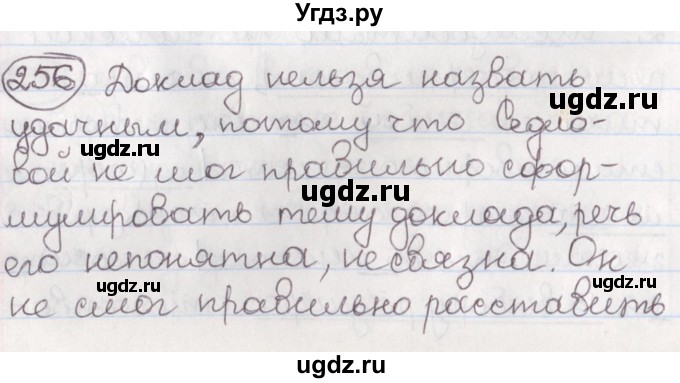 Угдз.ру
256 Доклад нельзя назвать
ugdz.ru
удачным, потому что Седло-
ugdz.ru
ugdz.ru
вой не мог правильно сфор-
мулировать тему доклада, речь
его непонятна, несвязна. Он
ugdz.ru
ugdz.ru
не смог правильно расставить
ugdz.ru